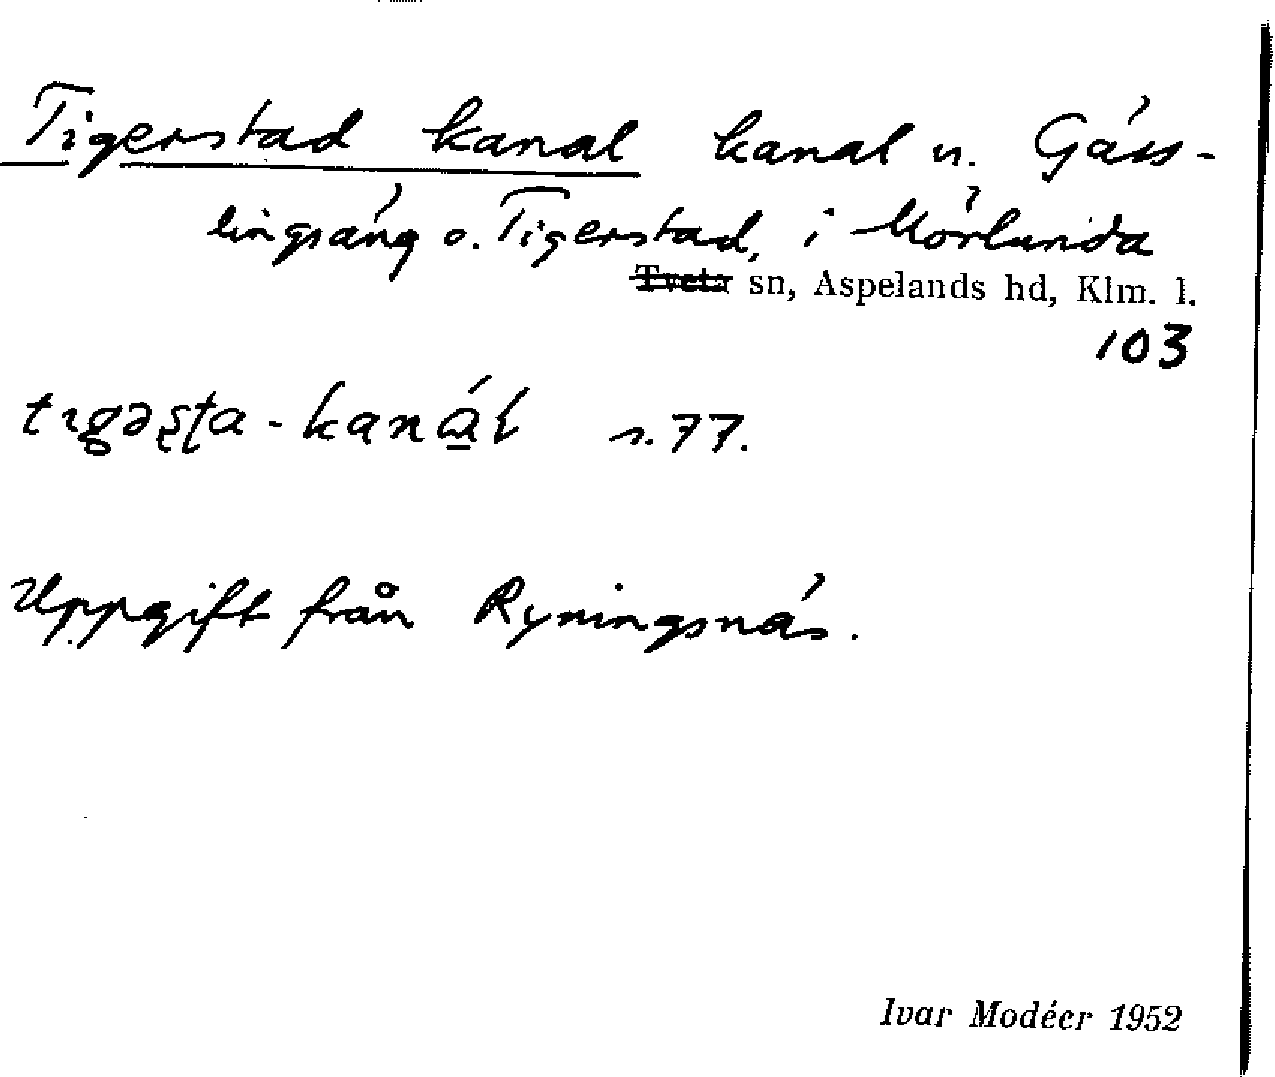 Tigerstad kanal kanal n. Gäss-
lingsäng o. Tigerstad, i Mörlunda
Tveta sn, Aspelands hd, Klm. l.
103
tɩgəʂʈa-kanál s. 77.
Uppgift från Ryningsnäs.
Ivar Modéer 1952